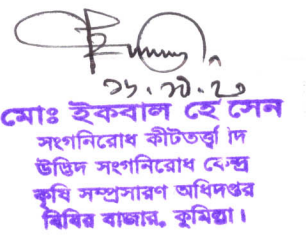 মোঃ ইকবাল হোসেন
সংগনিরোধ কীটতত্ত্ববিদ
উদ্ভিদ সংগনিরোধ কেন্দ্র
কৃষি সম্প্রসারণ অধিদপ্তর
বিবির বাজার, কুমিল্লা।